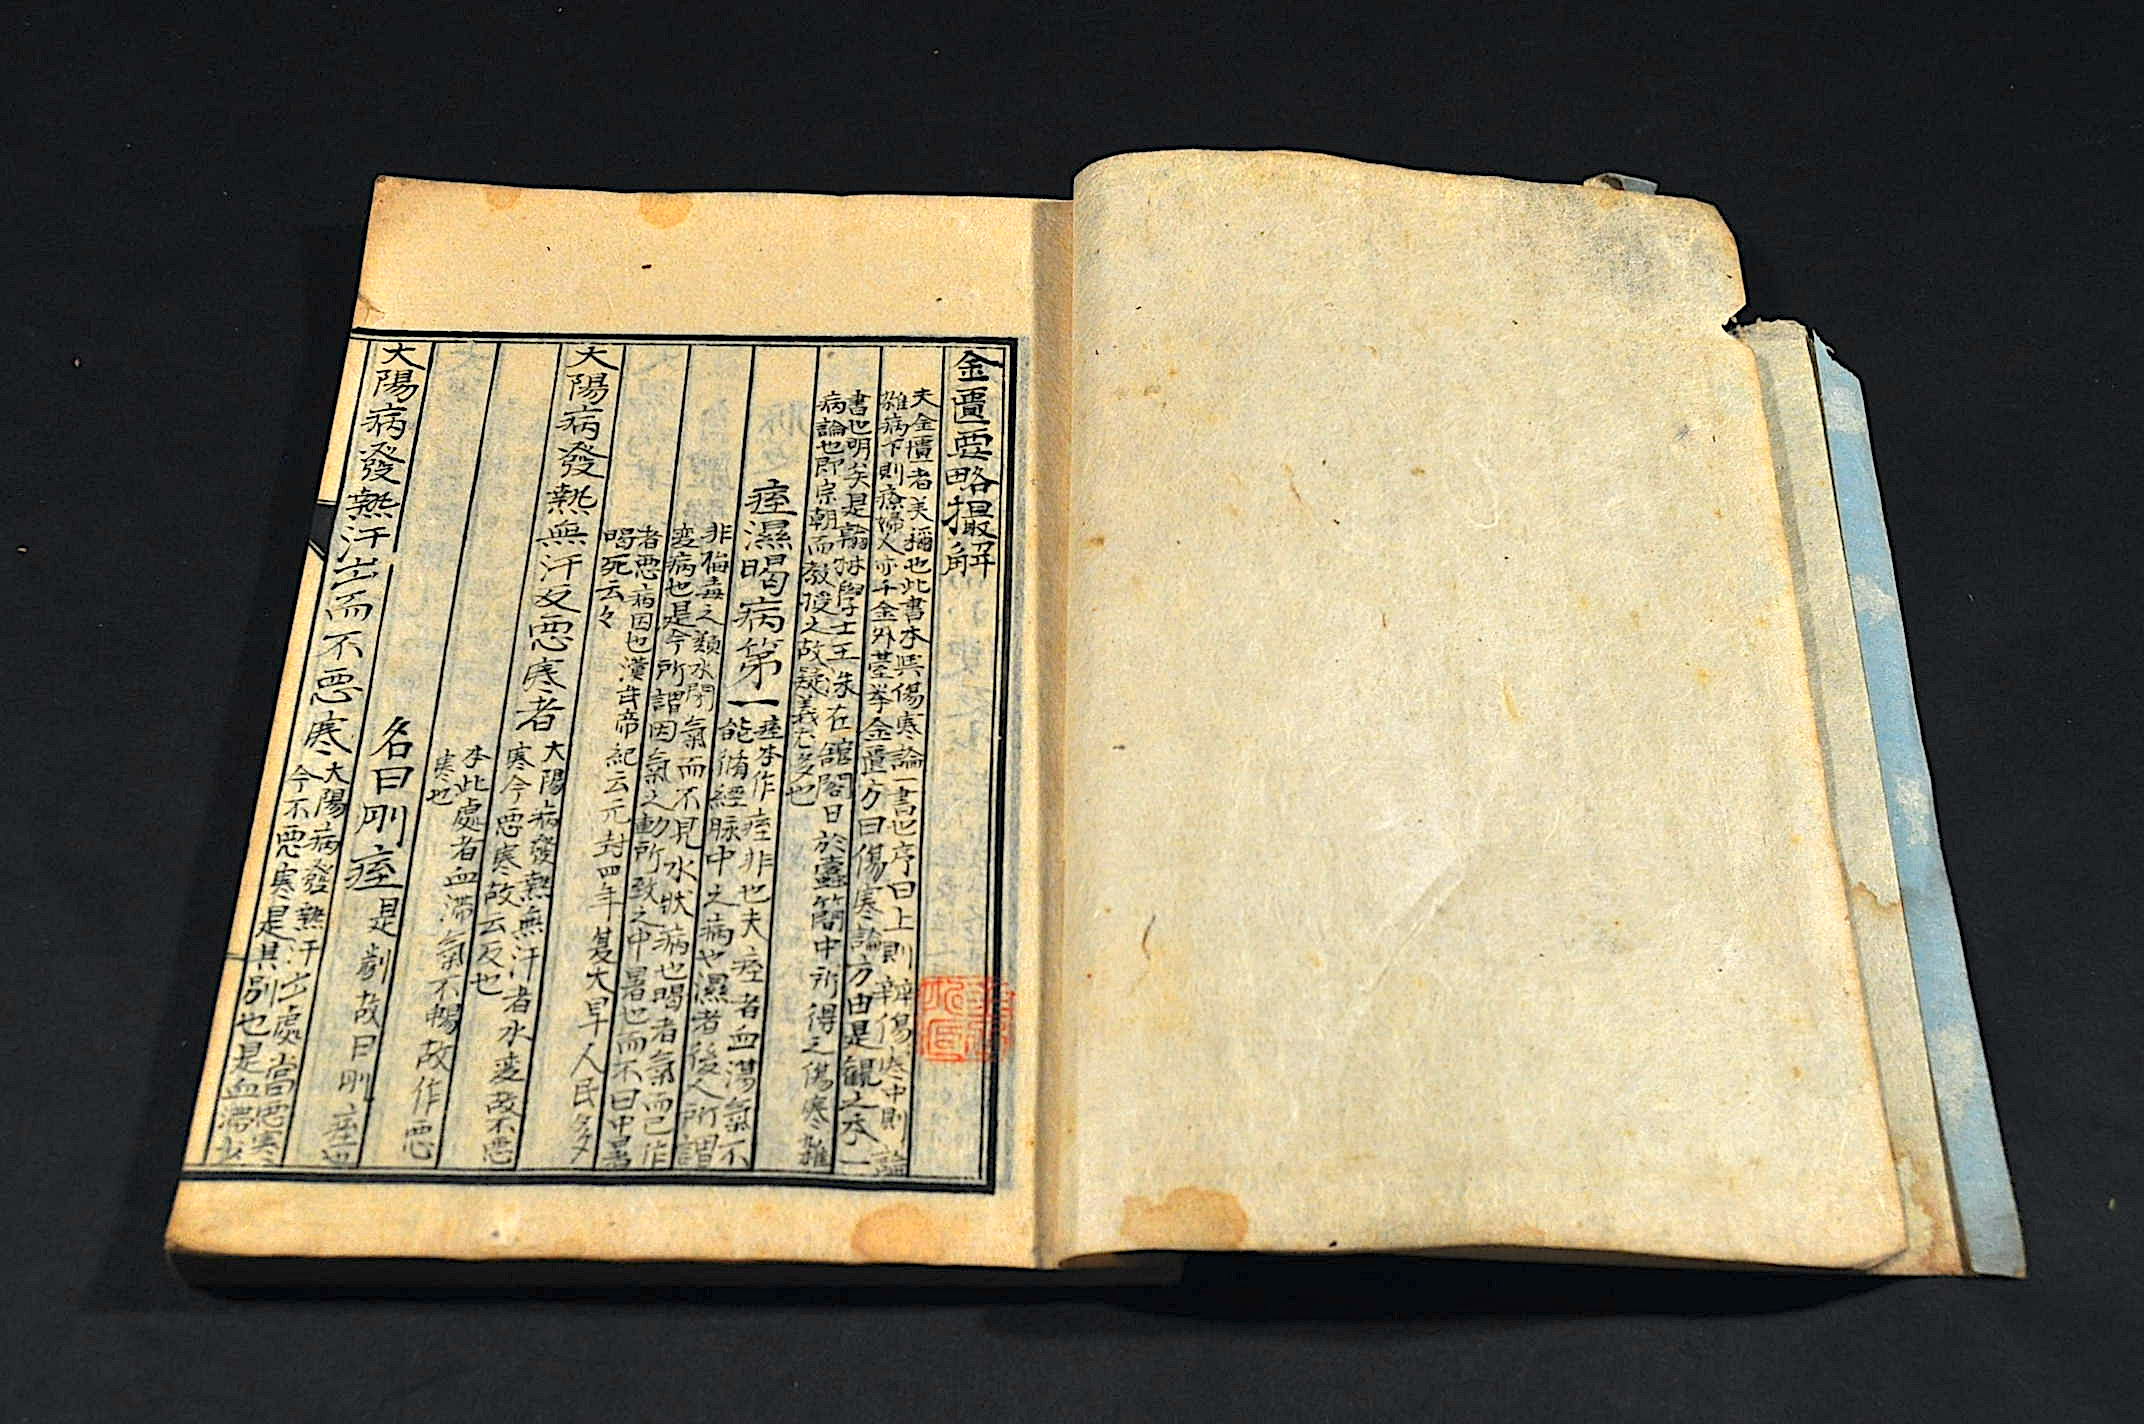 金匱要略撮解
夫金匱者美稱也此書本與傷寒論一書也序曰上則辨傷寒中則論
雜病下則療婦人亦千金外臺挙金匱方曰傷寒論方由是観之本一
書也明矣是翰林學士王洙在舘閣日於蠹簡中所得之傷寒雜
病論也即宗朝而教授之故疑義尤多也
痙濕暍病第一
痙本作痓非也夫痙者血滞氣不
能脩經脉中之病也濕者後人所謂
非偏毒之類水閉氣而不見水状病也暍者氣而已作
変病也是今所謂因氣之動所致之中暑也而不曰中暑
者悪病因也漢武帝紀云元封四年夏大旱人民多
暍死云々
大陽病發熱無汗反悪寒者
大陽病發熱無汗者水変故不悪
寒今悪寒故云反也
本此處者血滞氣不暢故作悪
寒也
名曰剛痙
是劇故曰剛痙也
大陽病發熱汗出而不悪寒
大陽病發熱汗出處當悪寒
今不悪寒是其別也是血滞